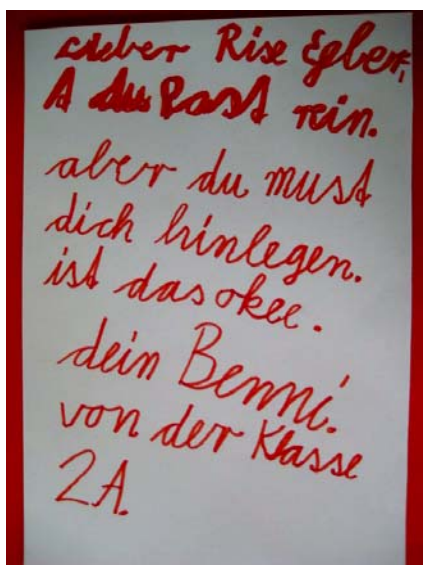 Lieber Rise Egbert,
A du Past rein.
aber du must
dich hinlegen.
ist das okee.
dein Benni.
von der Klasse
2A.